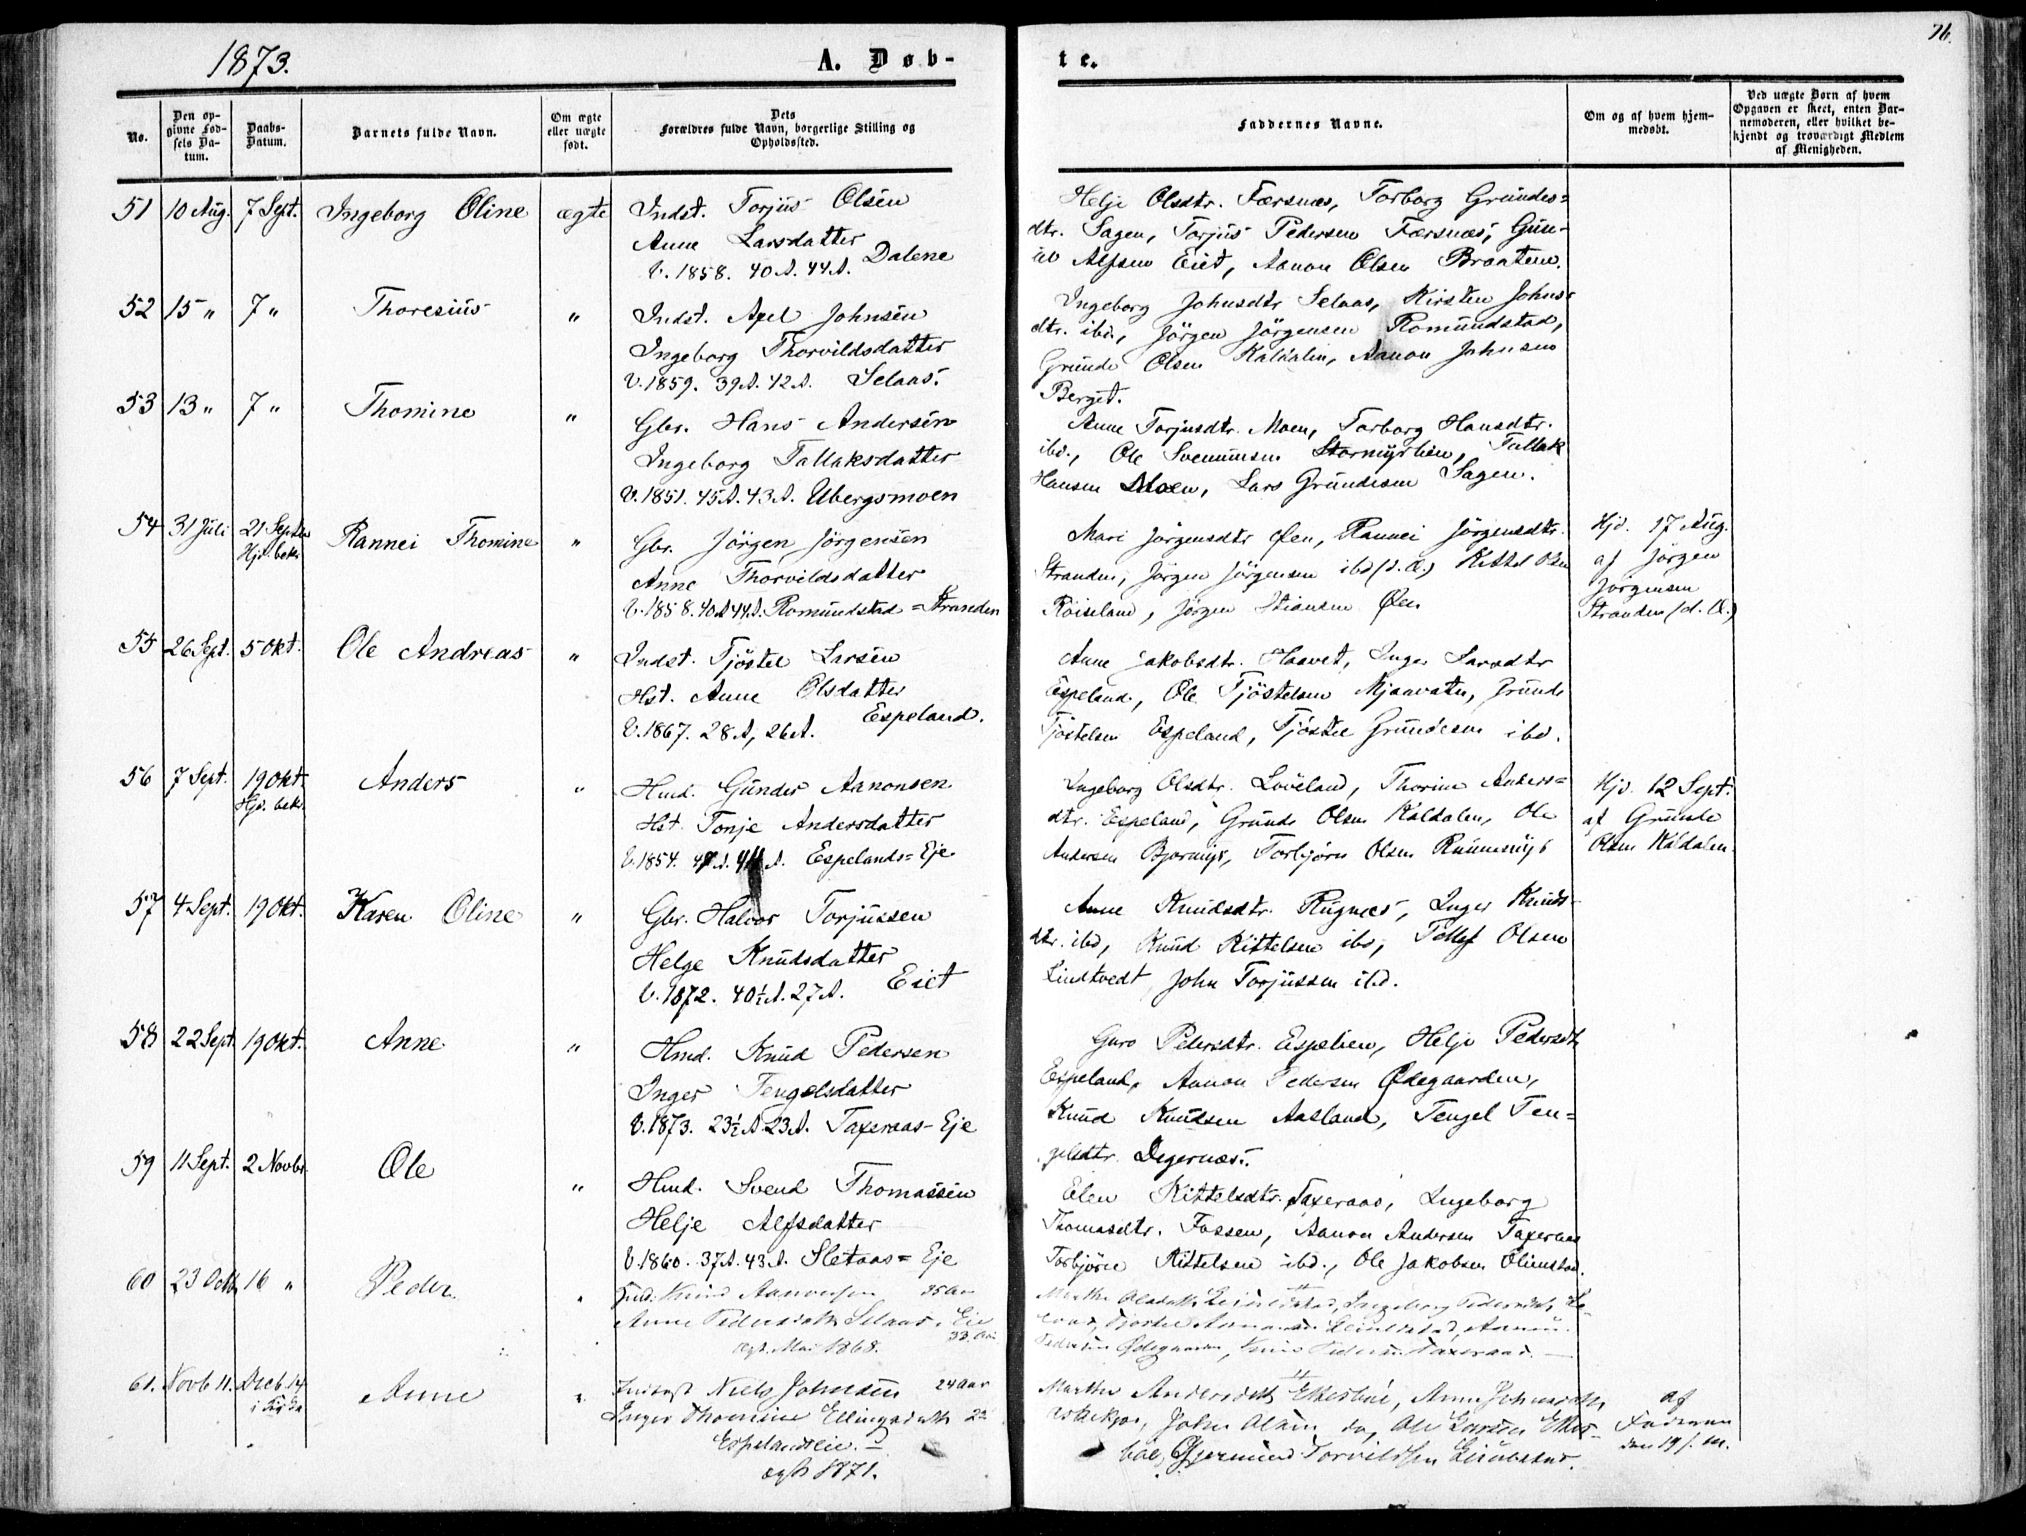 1873.
A. Døb-
te.
76.
No.
Den op-
givne Fød-
sels Da-
tum.
Daabs-
Datum.
Barnets fulde Navn.
Om ægte
eller uægte
født.
Dets
Forældres fulde Navn, borgerlige Stilling og
Opholdssted.
Faddernes Navne.
Om og af hvem hjem-
medøbt.
Ved uægte Børn af hvem
Opgaven er skeet, enten Bar-
nemoderen, eller hvilket be-
kjendt og troværdigt Medlem
af Menigheden.
51 10 Aug. 7 Sept. Ingeborg Oline ægte Indst. Torjus Olsen
Anne Larsdatter
V. 1858. 40 A. 44 A. Dalene
Helje Olsdtr. Færsnæs, Torborg Grundes=
dtr. Sagen, Torjus Pedersen Færsnæs, Gun-
Alfsen Eiet, Aanon Olsen Braaten.
52 15 " 7 " Thoresius " Indst. Axel Johnsen
Ingeborg Thorvildsdatter
V. 1859. 39 A. 42 A. Selaas.
Ingeborg Johnsdtr Selaas, Kirsten Johns-
dtr. ibd., Jörgen Jörgensen Romundstad,
Grunde Olsen Kaldalen, Aanon Johnsen
Berget.
53 13 " 7 " Thomine " Gbr. Hans Andersen
Ingeborg Tallaksdatter
V. 1851. 45 A. 43 A. Ubergsmoen
Anne Torjusdtr. Moen, Torborg Hansdtr.
ibd., Ole Svennunsen Stormyrlien, Tallak
Hansen Moen, Lars Grundesen Sagen.
54 31 Juli 21 Septbr
Hjd. bekr. Rannei Thomine " Gbr. Jörgen Jörgensen
Anne Thorvildsdatter
V. 1858. 40 A 44 A. Romundstad = Stranden
Mari Jörgensdtr Øen, Rannei Jörgensdtr.
Stranden, Jörgen Jörgensen ibd (d. Æ.) Kittel Olsen
Röiseland, Jörgen Stiansen Øen
Hjd. 17 Aug.
af Jörgen
Jörgensen
Stranden (d. Æ.)
55 26 Sept. 5 Okt. Ole Andreas " Indst. Tjöstel Larsen
Hst. Anne Olsdatter
V. 1867. 28 A, 26 A. Espeland.
Anne Jakobsdtr. Haavet, Inger Larsdtr
Espeland, Ole Tjöstelsen Mjaavatn, Grunde
Tjöstelsen Espeland, Tjöstel Grundesen ibd.
56 7 Sept. 19 Okt.
Hjd. bekr. Anders " Hmd. Gunder Aanonsen
Hst. Tonje Andersdatter
V. 1854. A. Espelands=Eje
Ingeborg Olsdtr. Loveland, Thorine Anders=
dtr. Espeland, Grunde Olsen Kaldalen, Ole
Andersen Bjormyr, Torbjörn Olsen
Hjd. 12 Sept.
af Grunde
Olsen Kaldalen
57 4 Sept. 19 Okt. Karen Oline " Gbr. Halvor Torjussen
Helge Knudsdatter
V. 1872. 40½ A. 27 A. Eiet
Anne Knudsdtr. Rugnes, Inger Knuds-
dtr. ibd, Knud Kittelsen ibd, Tellef Olsen
Lindtvedt, John Torjussen ibd.
58 22 Sept. 19 Okt. Anne " Hmd. Knud Pedersen
Inger Tengelsdatter
V. 1873. 23½ A. 23 A. Taxeraas-Eje
Guro Pedersdtr. Espelien, Helje Pedersdtr
Espeland, Aanon Pedersen Ødegaarden,
Knud Knudsen Aasland, Tengel Ten=
gelsdtr. Degernæs.
59 11 Sept. 2 Novbr. Ole " Hmd. Svend Thomassen
Helje Alfsdatter
V. 1860. 37 A. 43 A. Sletaas=Eje
Elen Kittelsdtr. Taxeraas, Ingeborg
Thomasdtr. Fossen, Aanon Andersen Taxeraas
Torbjörn Kittelsen ibd., Ole Jakobsen Olimstad.
60 23 Octb 16 " Peder " Knud Aanonsen 35 Aar
Anne Pedersdatter Selaas Eie
33 Aar
ægt. Mai 1868.
Marthe Olsdatter Ingeborg Pedersdatter
Pedersen Ødegaarden, Knud Pedersen Taxeraas.
61. Novb 11. Decb. 14
i Kirken Anne " Indst Niels Johnsen 24 Aar
Inger Thomine Ellingsdatter 22
Espelandseie.
ægt 1871.
Marthe Andersdatter Anne
John Olsen do, Ole Larsen
Gjermund Torvildsen
af
Faderen
den 19 f. m.